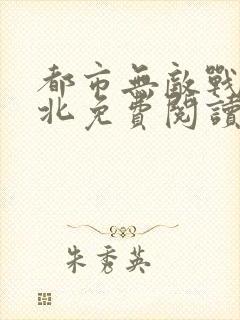 都市無敵戰
北免費閱讀
朱秀英